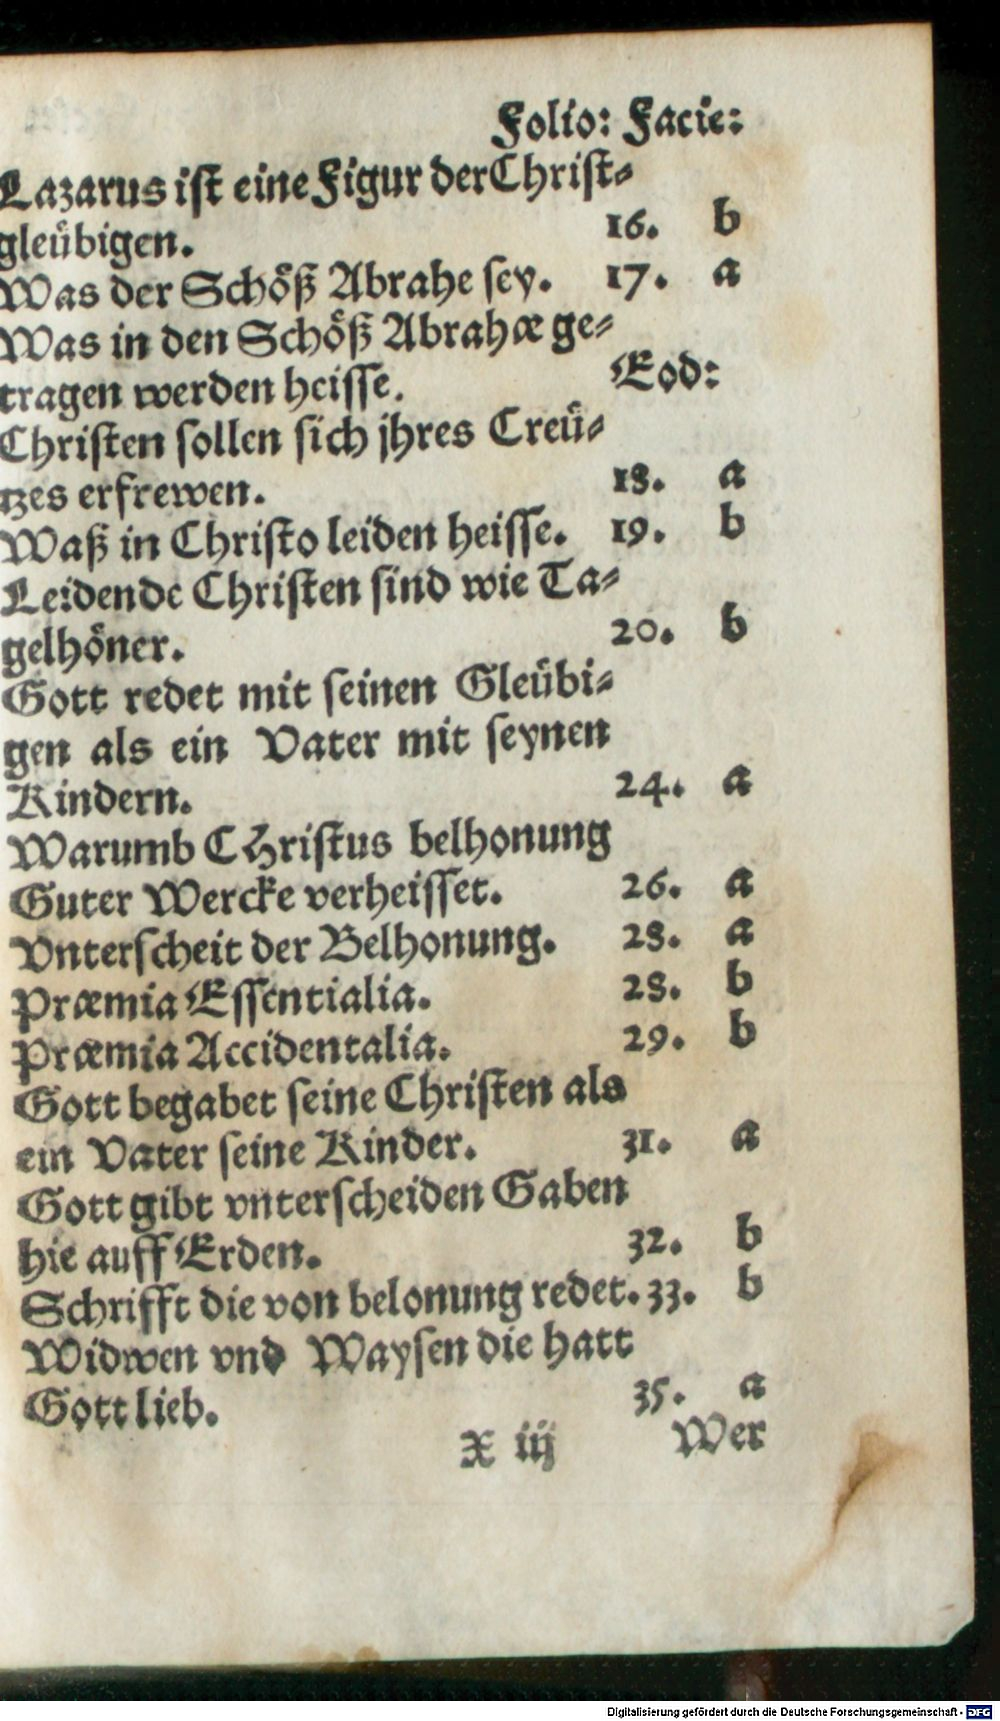 Folio: Facie:
Lazarus ist eine Figur der Christ⸗
gleübigen. 16. b
Was der Schöß Abrahe sey. 17. a
Was in den Schöß Abrahæ ge⸗
tragen werden heisse. Eod:
Christen sollen sich jhres Creü⸗
tzes erfrewen. 18. a
Waß in Christo leiden heisse. 19. b
Leidende Christen sind wie Ta⸗
gelhöner. 20. b
Gott redet mit seinen Gleübi⸗
gen als ein Vater mit seynen
Kindern. 24. a
Warumb CHristus belhonung
Guter Wercke verheisset. 26. a
Vnterscheit der Belhonung. 28. a
Præmia Essentialia. 28. b
Præmia Accidentalia. 29. b
Gott begabet seine Christen als
ein Vater seine Kinder. 31. a
Gott gibt vnterscheiden Gaben
hie auff Erden. 32. b
Schrifft die von belonung redet. 33. b
Widwen vnd Waysen die hatt
Gott lieb. 35. a
X iij Wer
Digitalisierung gefördert durch die Deutsche Forschungsgemeinschaft - DFG